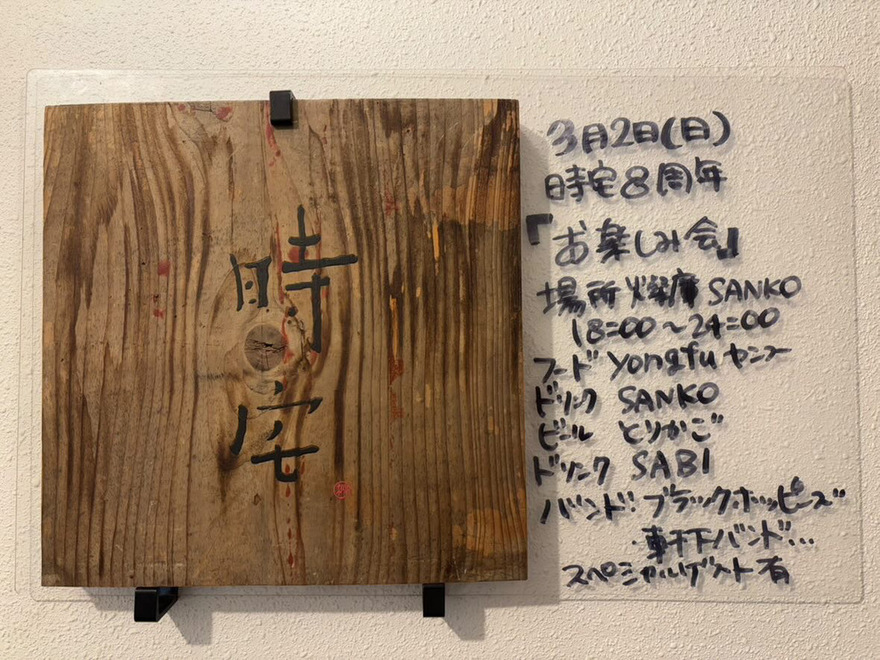 時宅
3月2日(日)
時宅8周年
『お楽しみ会』
場所 SANKO
18=00〜24=00
フード yongfu ヤンフー
ドリンク SANKO
ビール とりかご
ドリンク SABI
バンド! ブラックホッピーズ
・軒下バンド...
スペシャルゲスト有